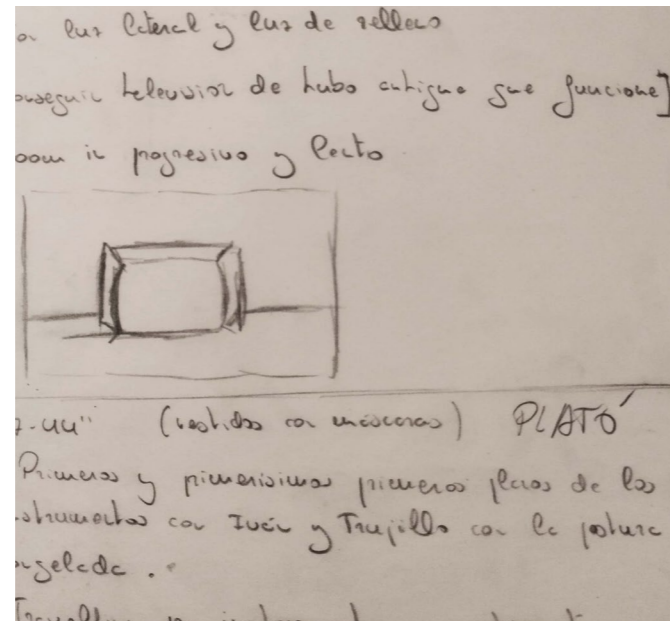 luz lateral y luz de relleno
televisor de tubo antiguo que funcione]
in progresivo y lento
44" (vestidos con máscaras) PLATÓ
Primeros y primerísimos primeros planos de los
con Iván y Trujillo con la postura